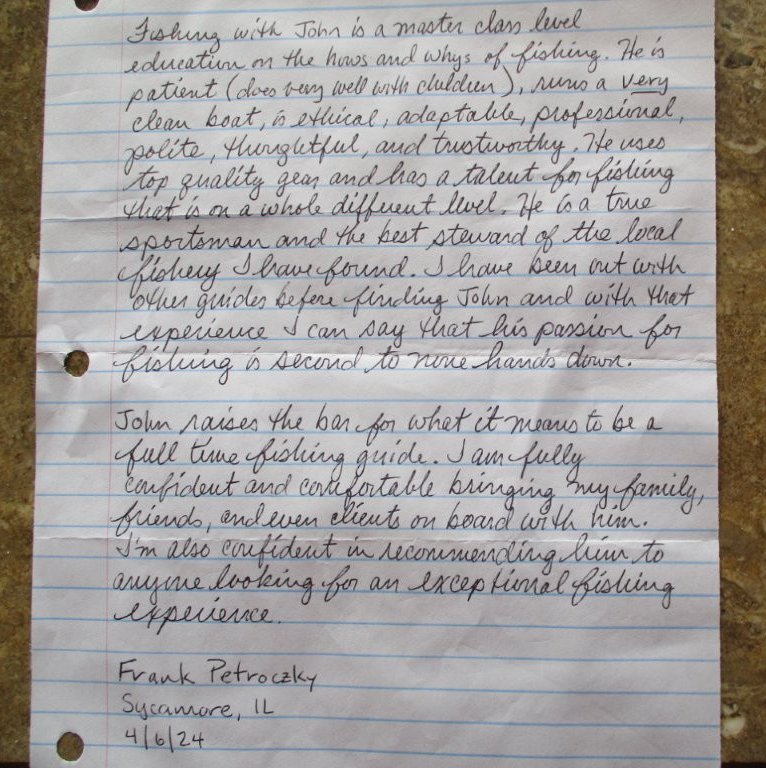 Fishing with John is a master class level
education on the hows and whys of fishing. He is
patient (does very well with children), runs a very
clean boat, is ethical, adaptable, professional,
polite, thoughtful, and trustworthy. He uses
top quality gear and has a talent for fishing
that is on a whole different level. He is a true
sportsman and the best steward of the local
fishery I have found. I have been out with
other guides before finding John and with that
experience I can say that his passion for
fishing is second to none hands down.
John raises the bar for what it means to be a
full time fishing guide. I am fully
confident and comfortable bringing my family,
friends, and even clients on board with him.
I'm also confident in recommending him to
anyone looking for an exceptional fishing
experience.
Frank Petroczky
Sycamore, IL
4/6/24